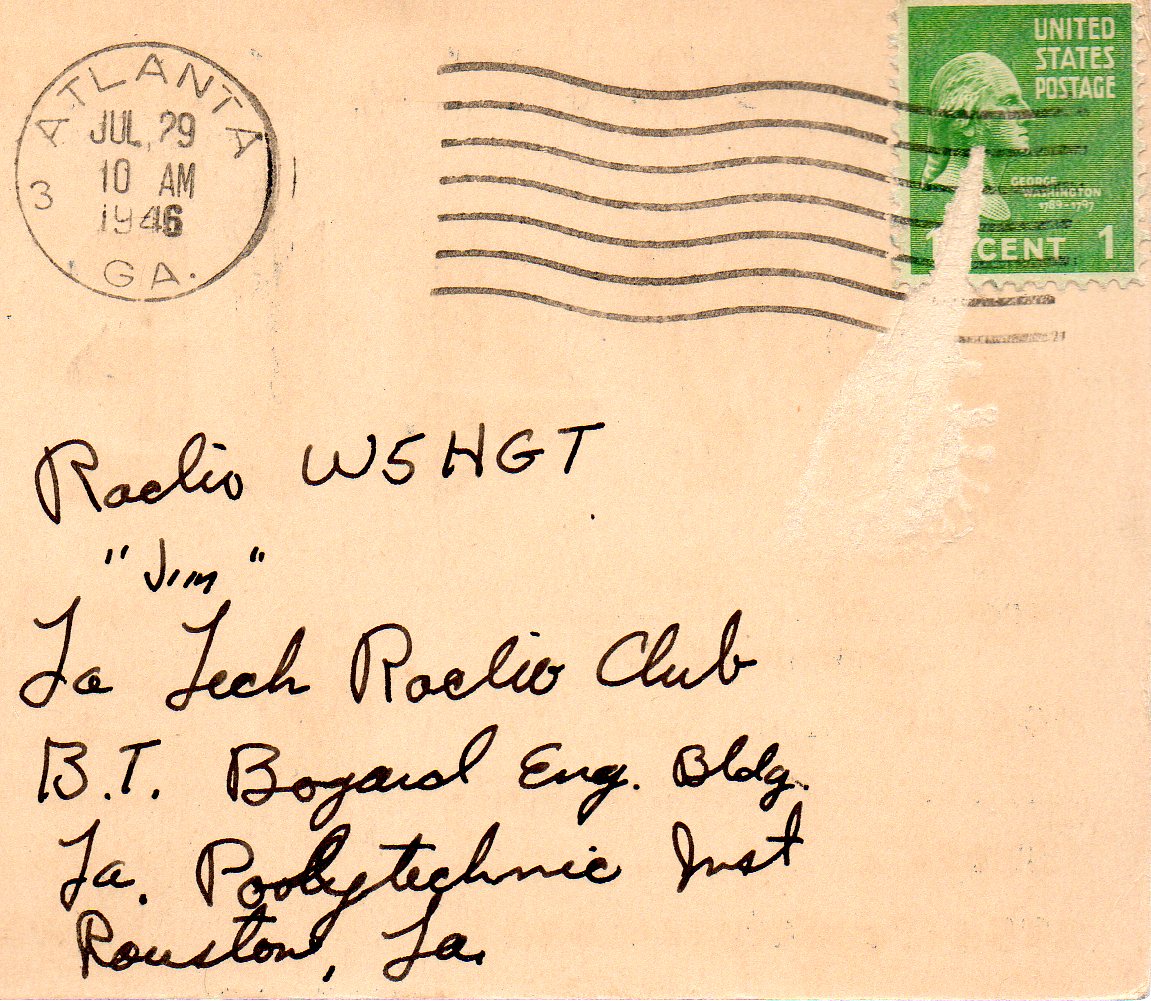 ATLANTA
JUL, 29
10 AM
1946
3
GA.
UNITED
STATES
POSTAGE
GEORGE
WASHINGTON
1789-1797
1 CENT 1
Radio W5HGT
"Jim"
La Tech Radio Club
B.T. Bogard Eng. Bldg.
La. Poolytechnic Inst
Rouston, La.